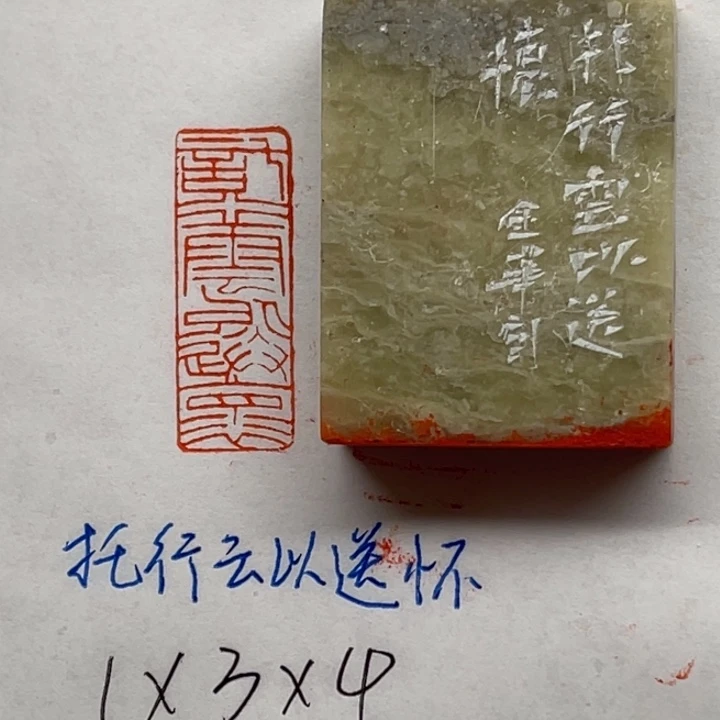 託行雲以送
懷
金華刻
托行云以送怀
1×3×4